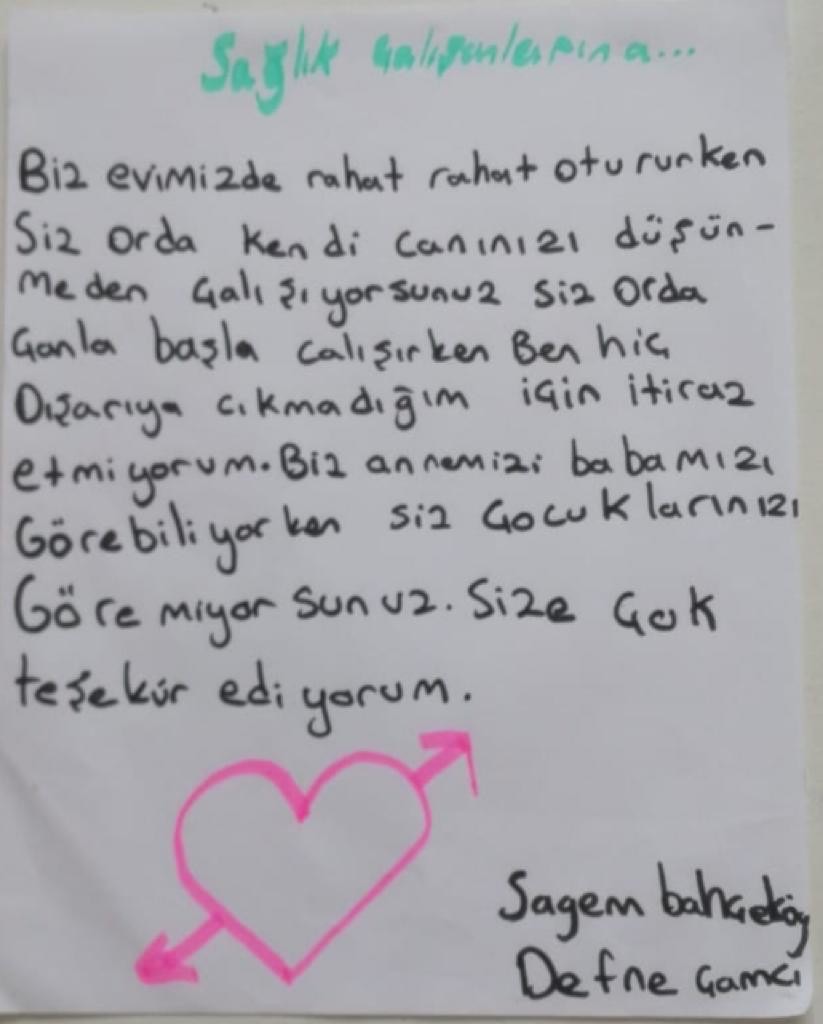 Sağlık Çalışanlarına...
Biz evimizde rahat rahat otururken
Siz Orda kendi canınızı düşün-
meden çalışıyorsunuz siz orda
Canla başla calışırken Ben hiç
Dışarıya cıkmadığım için itiraz
etmiyorum. Biz annemizi babamızı
Görebiliyorken siz çocuklarınızı
Göremiyorsunuz. Size çok
teşekür ediyorum.
Sagem bahçeköy
Defne Çamcı